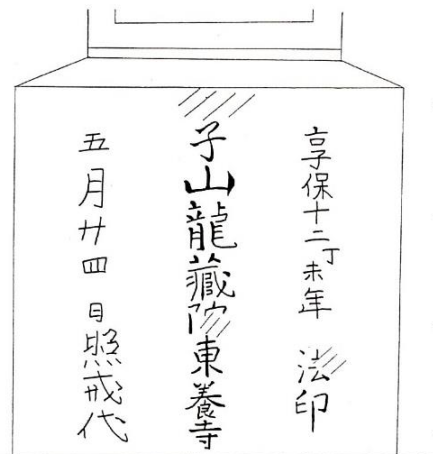 享保十二丁未年 法印
子山龍藏院東養寺
五月廿四日照戒代